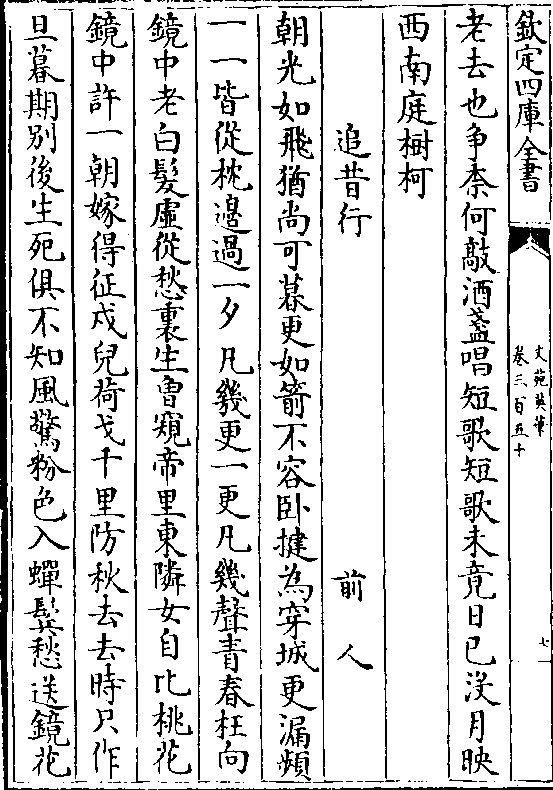 欽定四庫全書
文苑英華
卷三百五十
七
老去也争柰何敲酒盞唱短歌短歌未竟日已没月映
西南庭樹柯
追昔行
前人
朝光如飛猶尚可暮更如箭不容卧揵為穿城更漏頻
一一皆從枕邉過一夕凡幾更一更凡幾聲青春枉向
鏡中老白髮虚從愁裏生曽窺帝里東隣女自比桃花
鏡中許一朝嫁得征戍兒荷戈千里防秋去去時只作
旦暮期别後生死俱不知風驚粉色入蟬鬂愁送鏡花